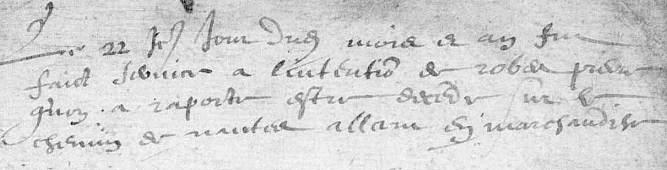 Le 22 jour dud mois et an fut
faict service a l'intentiō de robert
qu'on a raporté estre decedé sur le
chemin de nantes allant en marchandise